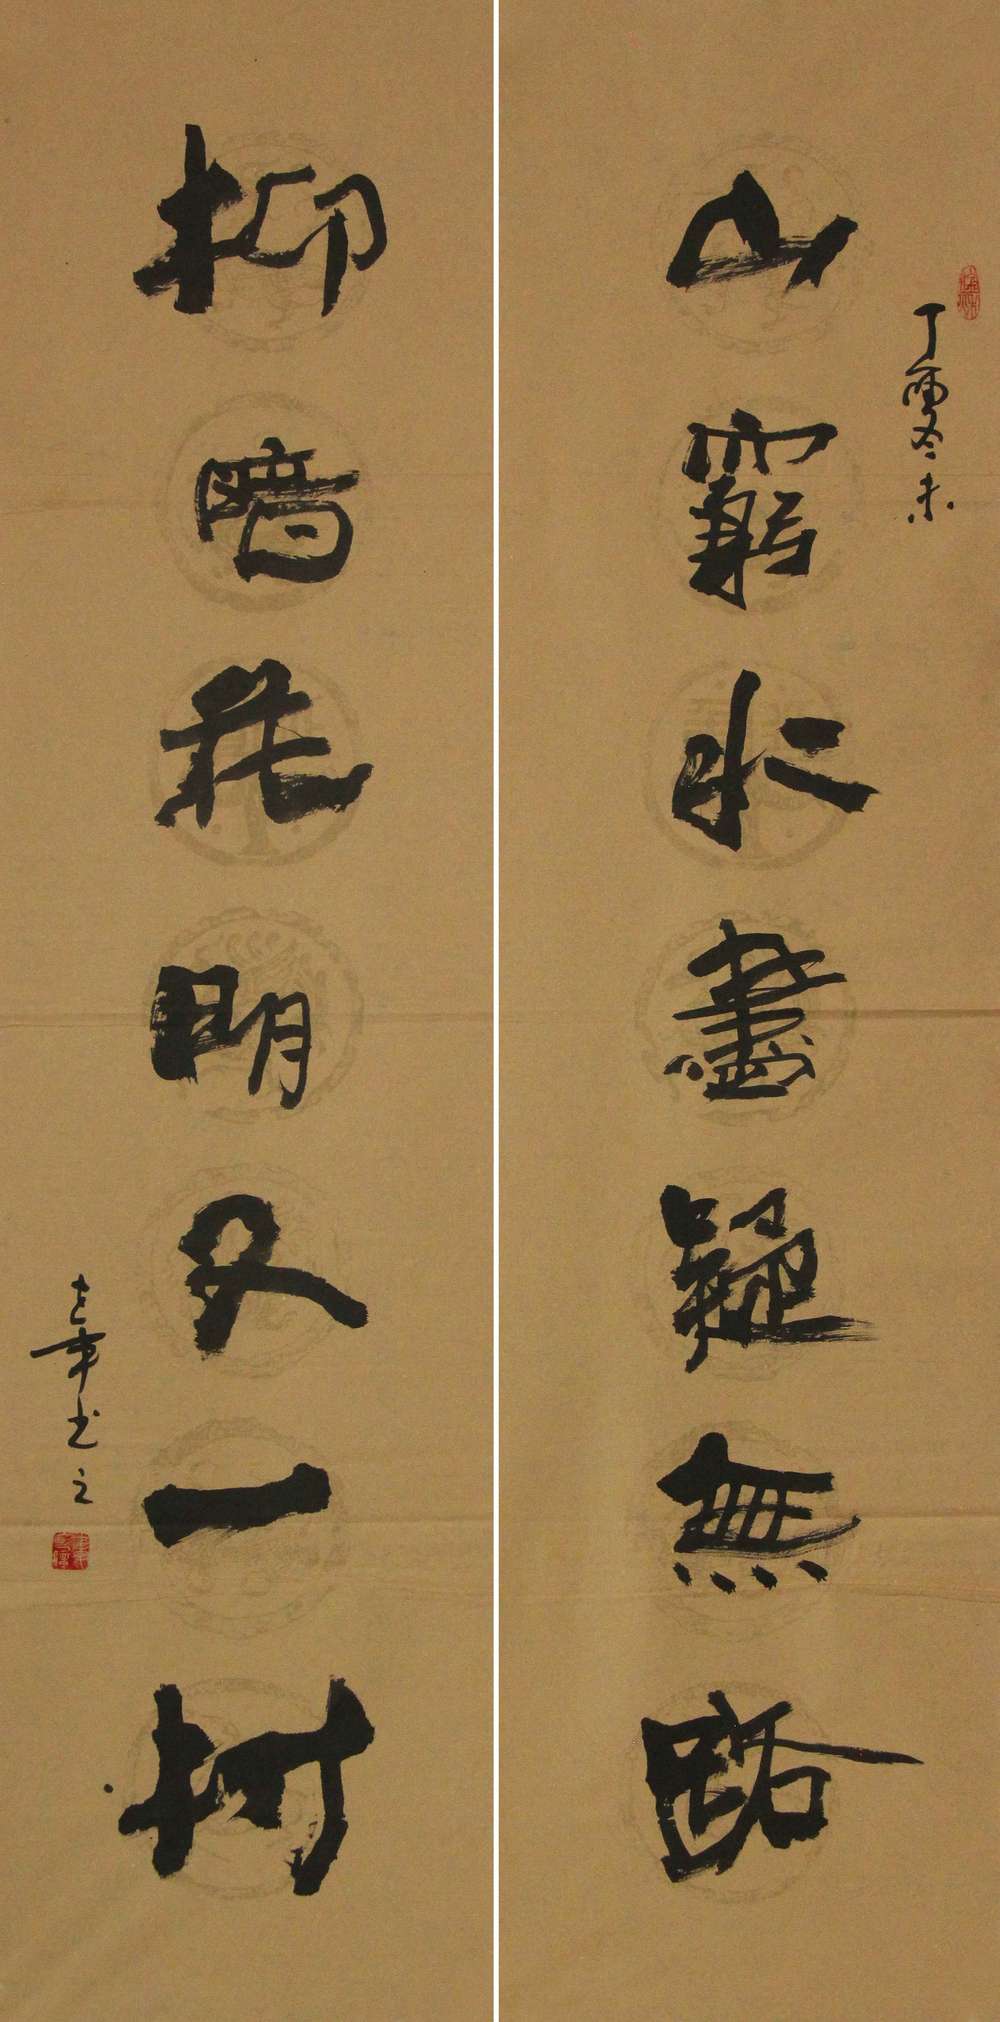 丁酉冬末
山窮水盡疑無路
柳暗花明又一村
书之